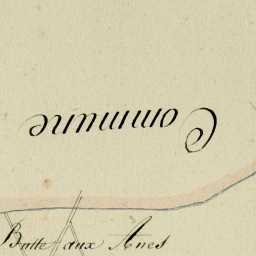 Commune
Butte aux Anes